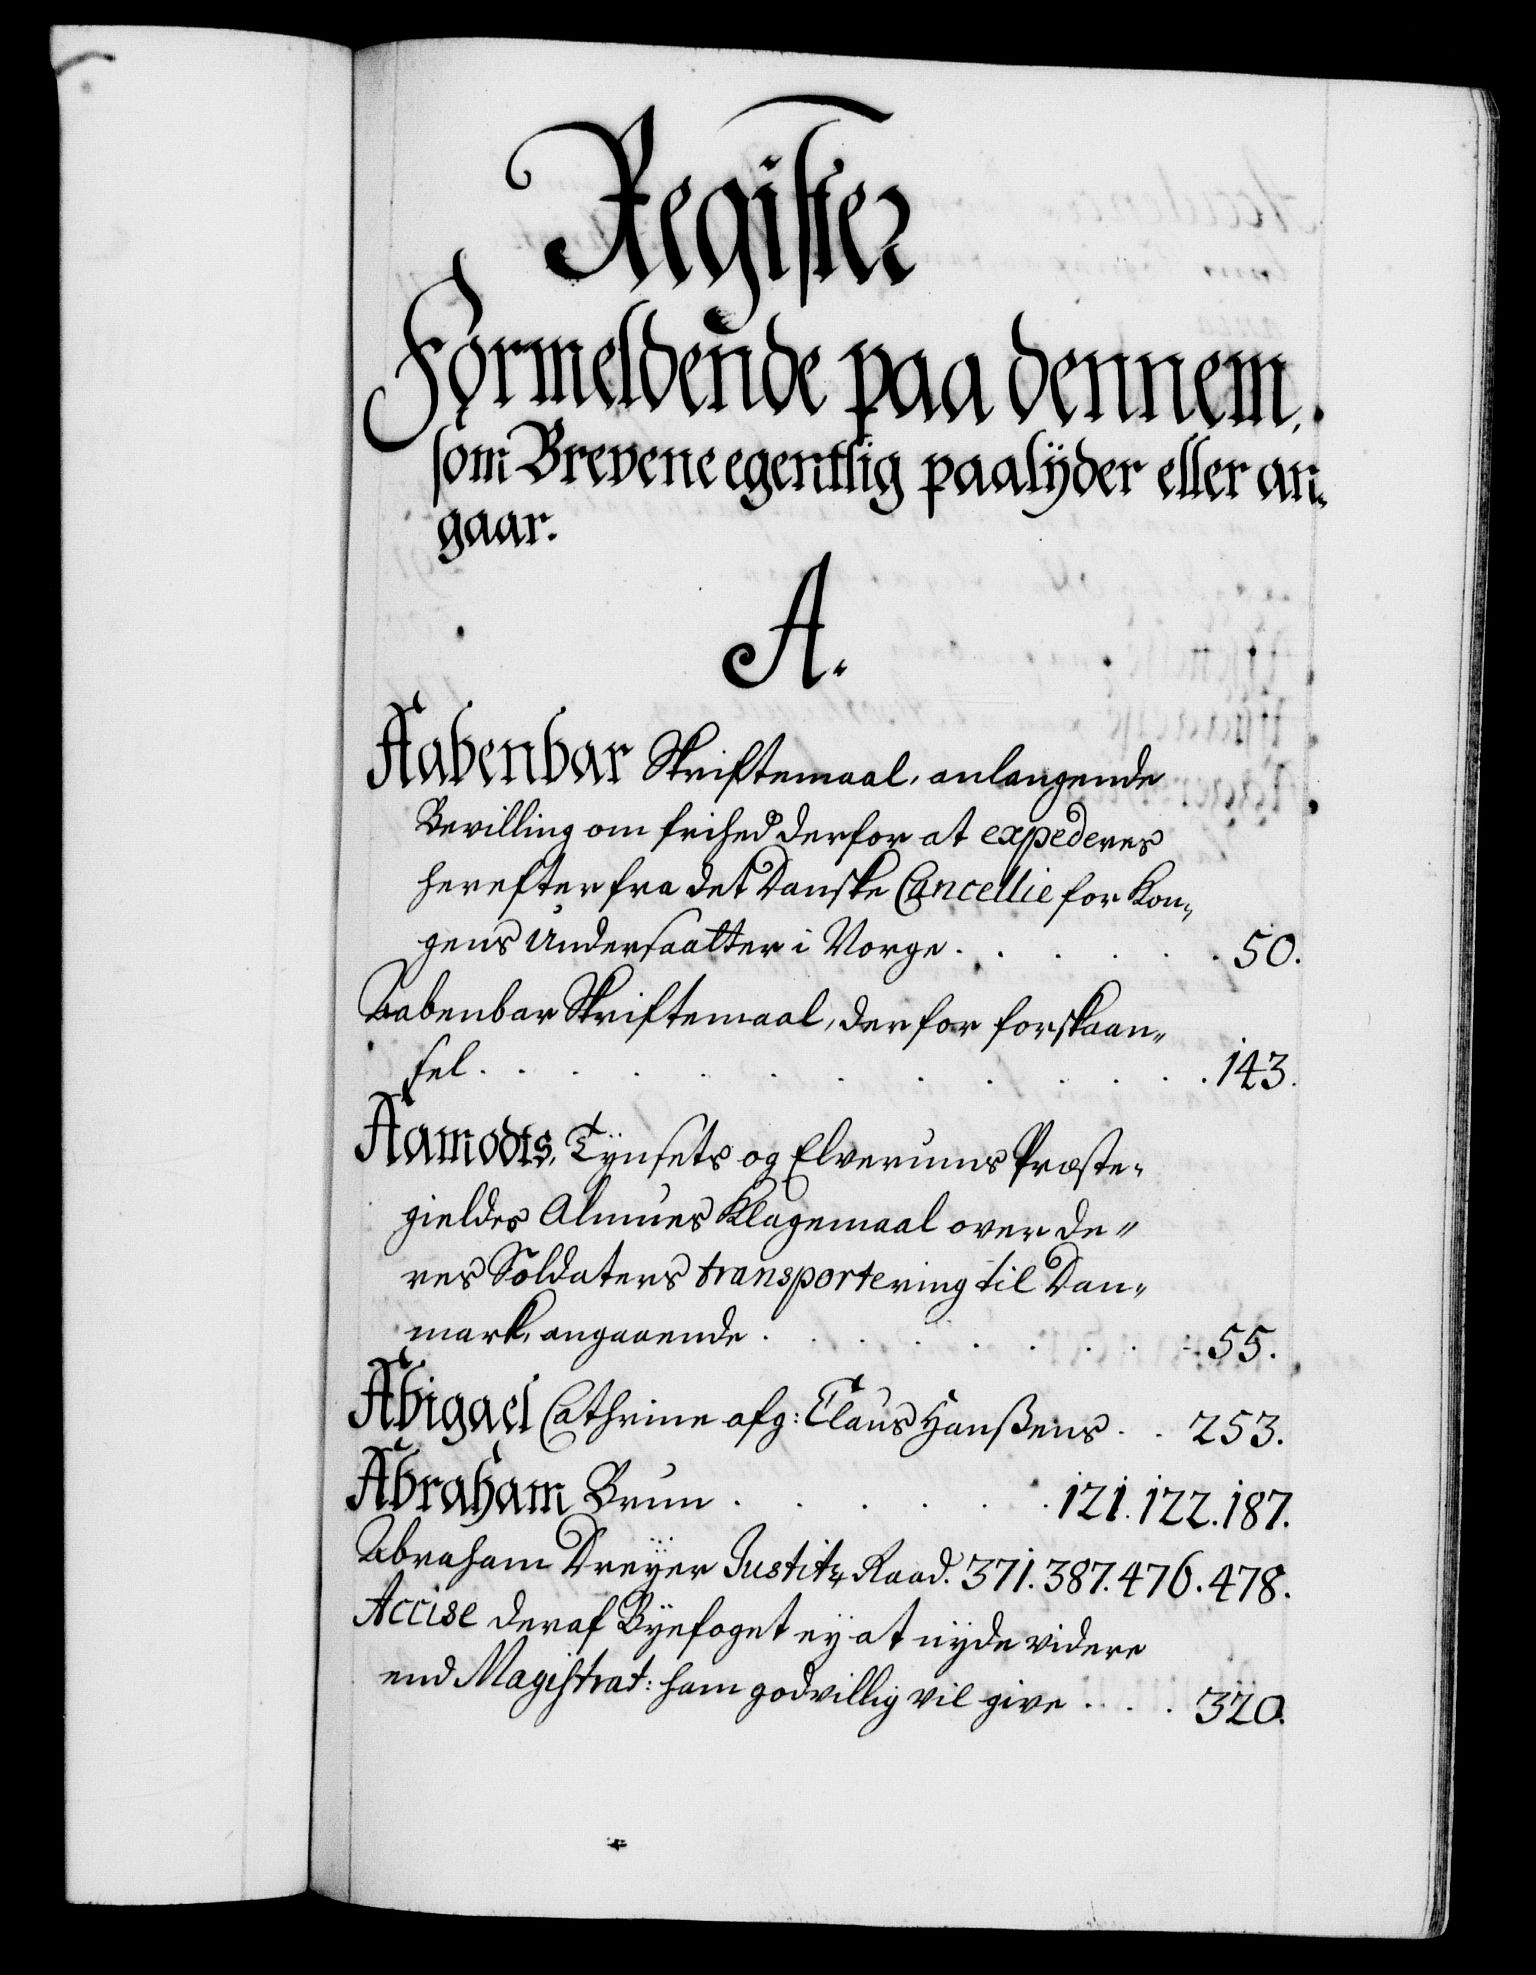 Register
Formeldende paa dennem,
som Brevene egentlig paalÿder eller an„
gaar.
A.
Aabenbar Skriftemaal, anlangende
Bevilling om frihed derfor at expederes
herefter fra det Danske Cancellie for Kon„
gens Undersaatter i Norge . . . . . . 50.
Aabenbar Skriftemaal, derfor forskaan„
sel . . . . . . . . . . . 143.
Aamodts, Tÿnsets og Elverums Præste„
gieldes Almues Klagemaal over de„
res Soldaters transportering til Dan„
mark, angaaende . . . . . . . . 55.
Abigael Cathrine afg: Claus Hanßens . . 253.
Abraham Brun . . . . . . 121. 122. 187.
Abraham Dreÿer Justitz Raad. 371. 387. 476. 478.
Accise deraf Bÿefoget eÿ at nÿde videre
end Magistrat: ham godvillig vil give . . . 320.